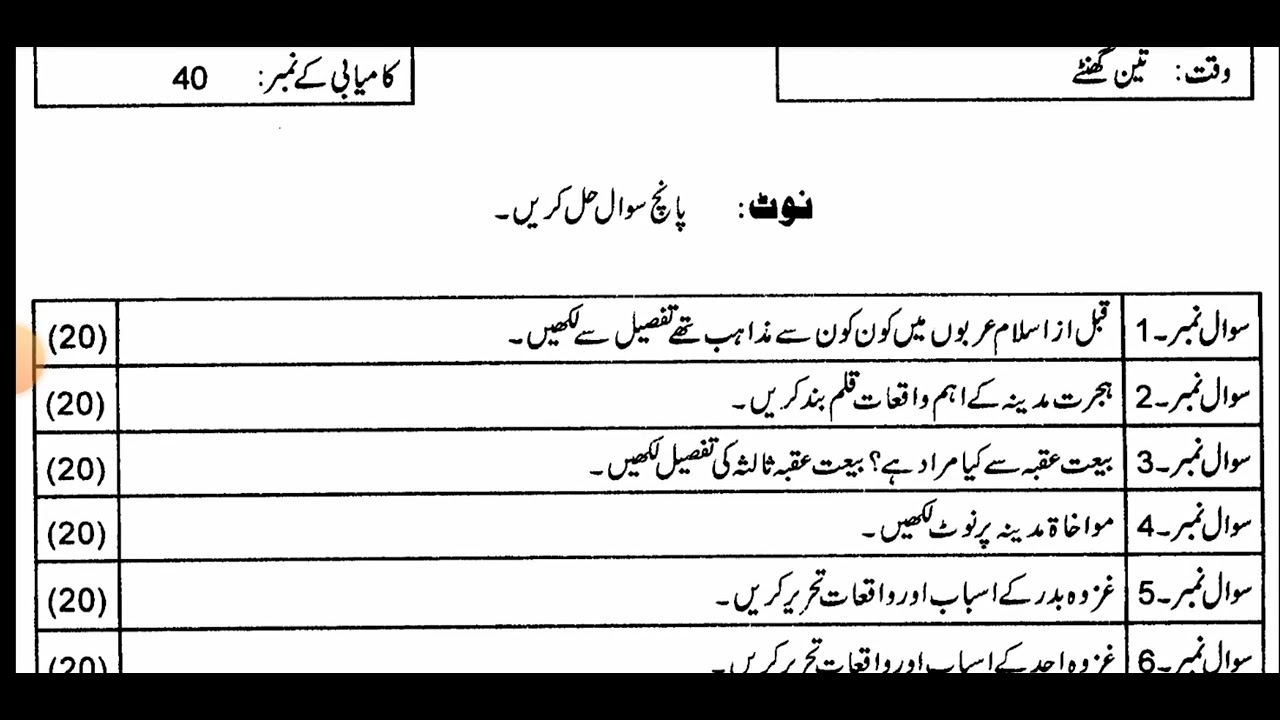 وقت: تین گھنٹے
کامیابی کے نمبر: 40
نوٹ: پانچ سوال حل کریں۔
سوال نمبر۔1 قبل از اسلام عربوں میں کون کون سے مذاہب تھے تفصیل سے لکھیں۔ (20)
سوال نمبر۔2 ہجرت مدینہ کے اہم واقعات قلم بند کریں۔ (20)
سوال نمبر۔3 بیعت عقبہ سے کیا مراد ہے؟ بیعت عقبہ ثالثہ کی تفصیل لکھیں۔ (20)
سوال نمبر۔4 مواخاۃ مدینہ پر نوٹ لکھیں۔ (20)
سوال نمبر۔5 غزوہ بدر کے اسباب اور واقعات تحریر کریں۔ (20)
سوال نمبر۔6 غزوہ احد کے اسباب اور واقعات تحریر کریں۔ (20)